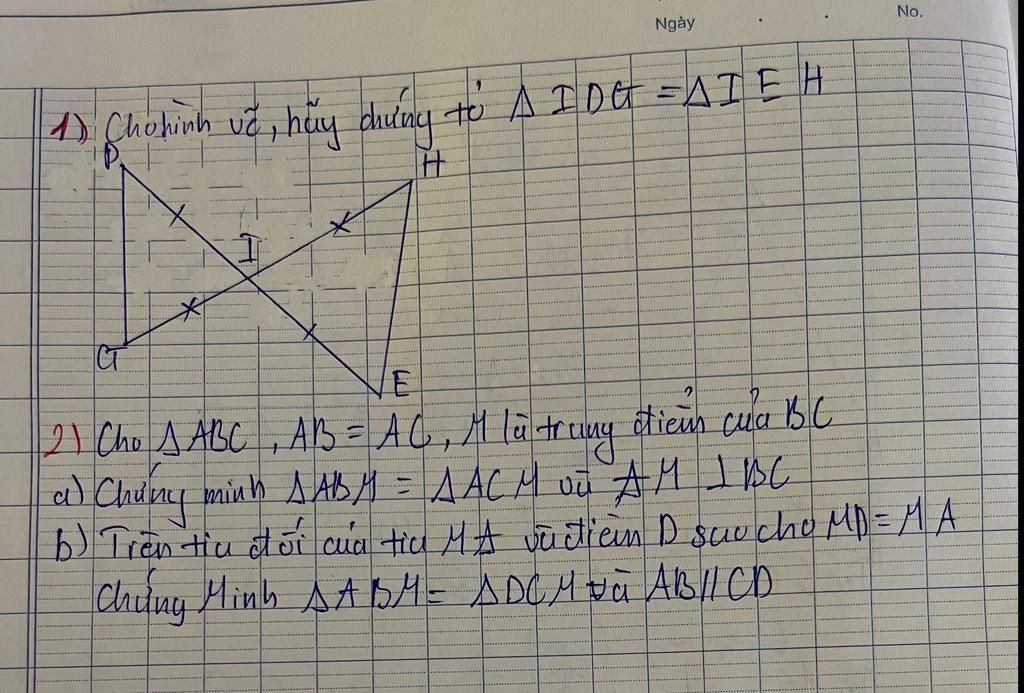 Ngày . . No.
1) Cho hình vẽ, hãy chứng tỏ Δ IDG = Δ I E H
D
H
I
G
E
2) Cho Δ ABC, AB = AC, M là trung điểm của BC
a) Chứng minh ΔABM = ΔACM và AM ⊥ BC
b) Trên tia đối của tia MA vẽ điểm D sao cho MD = MA
Chứng Minh ΔABM = ΔDCM và AB//CD